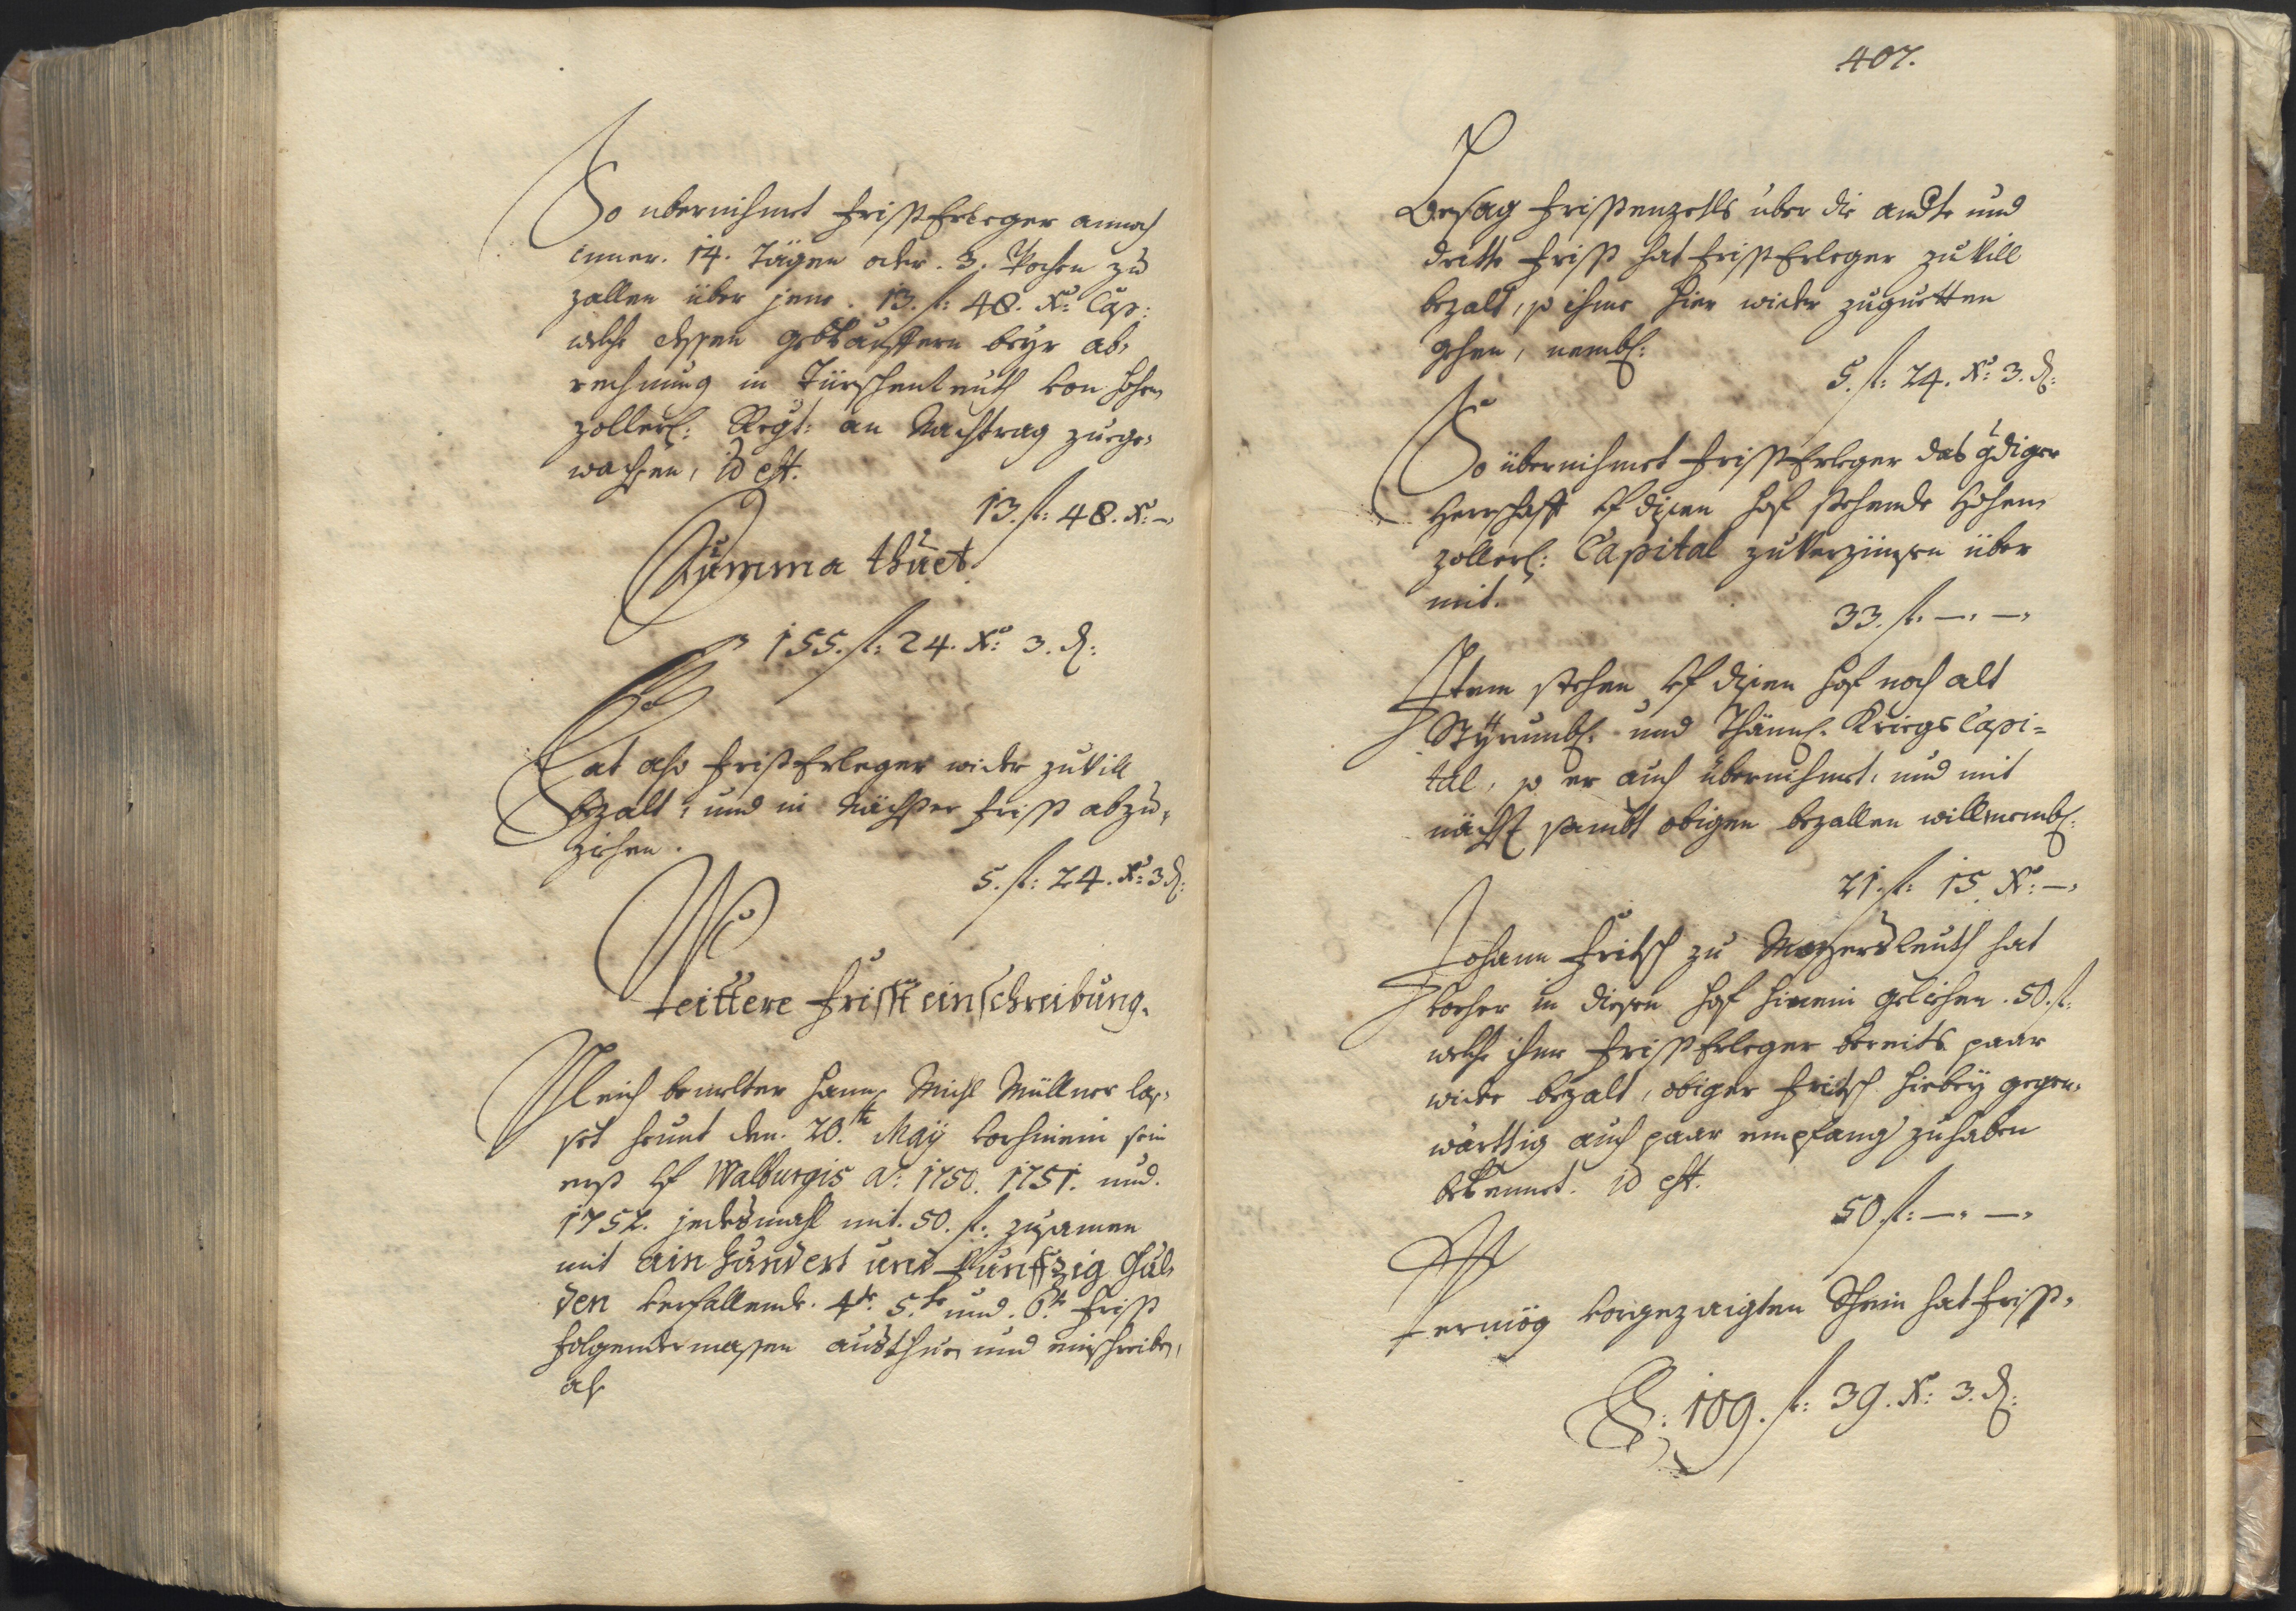 So übernihmet fristErleger annoch
inner. 14. Tägen oder. 3. Wochen zu
zallen über jene. 13. fl: 48. Xr: Cap:
welche dessen gebkauffern beyr ab-
rechnung in Türschenreuth von hohen
zollerl: Regt: an Nachtrag zuege-
wachsen, id est.
13. fl: 48. Xr: –
Summa thuet.
155. fl: 24. Xr: 3. d:
Hat also fristErleger wider zuvill
bezalt, und in nächster frist abzu-
ziehen.
5. fl: 24. Xr: 3 d:
Weittere fristeinschreibung.
Gleich bemelter Hanns Michl Müllner las-
set heunt den. 20.te May vorhinein sein
erst vf Walburgis ao: 1750. 1751. und.
1752. jedesmahl mit. 50. fl: zusamen
mit ain hundert und Funffzig Gul-
den verfallende. 4te. 5.te und. 6.te frist
folgendermassen austhun und einschreiben,
als
407.
Besag fristenzetls über die andte und
dritte frist hat fristErleger zuvill
bezalt, so ihme hier wider zuguetten
gehen, nembl:
5. fl: 24. Xr: 3. d:
So übernihmet fristErleger das gdiger
Herrschafft vf disen hof stehende Hohen
zollerl: Capital zuverzünsen über
mit.
33. fl: –. –.
Item stehen vf disen hof noch alt
Styrumbl: und Thännl: Kriegs Capi=
tal, so er auch übernihmet, und mit
nächst sambt obigen bezallen will, nembl:
21. fl: 15. Xr: –.
Johann Fritsch zu Mozersreuth hat
vorher in diesen hof hinein gelichen. 50. fl:
welche ihme fristErleger bereits paar
wider bezalt, obiger Fritsch hiebey gegen-
wärttig auch paar empfang zuhaben
bekennet. id est.
50. fl: –. –.
Vermög vorgezaigten Schein hat frist-
S: 109. fl: 39. Xr: 3. d: